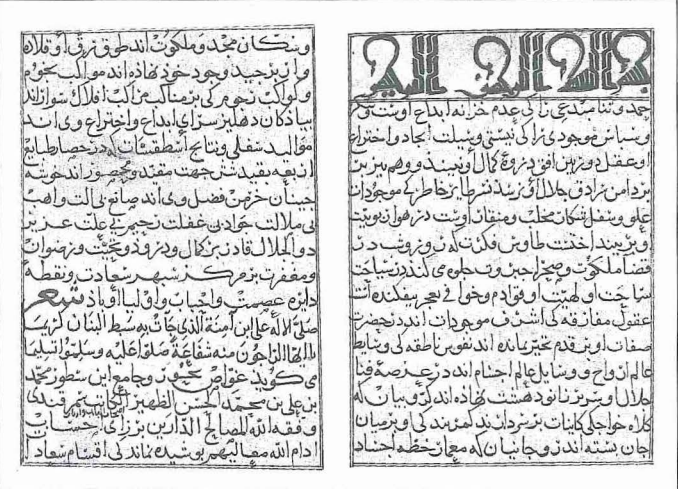 بسم الله الرحمن الرحیم
حمد و ثنا مبدعی را کی عدم خزانه ابداع اوست و شکر
و سپاس موجودی را کی نیستی وسیلت ایجاد و اختراع
او عقل دوربین افق ذروه کمال او نبیند و وهم تیزبین
بر دامن سرادق جلال او نرسد طایر خاطر کی موجودات
علوی و سفلی شکار مخلب و منقار اوست در هوای
قضا ملکوت و صحرا جبروت جلوه می کند در
سباحت او قوادم و خوافی عجز بیفکنده
عقول مفارقه کی اشرف موجودات اند در حضرت
صفات او بر قدم تحیر بمانده اند نفوس ناطقه کی وسایط
عالم ارواح و وسایل عالم اجسام اند در عرصه
جلال او سر بر زانو دهشت نهاده اند کروبیان که
کلاه خواجگی کاینات بر سر دارند کمر بندگی او بر میان
جان بسته اند روحانیان که معمار خطه اجساد
و سکان مجد و ملکوت اند طوق رق او قلاده
وار بر جید وجود خود نهاده اند مواکب نجوم
و کواکب نجوم کی بر مناکب مراکب افلاک سوار اند
بیادکان دهلیز سرای ابداع و اختراع وی اند
موالید سفلی و نتایج اسطقسات که در حصار طبایع
اربعه بقید شش جهت مقید و محصور اند خوشه
جینان خرمن فضل وی اند صانع بی الت واهب
بی ملالت جواد بی غفلت رحیم بی علت عزیز
ذوالجلال قادر بر کمال و درود و تحیت و رضوان
و مغفرت بر مرکز سپهر سعادت و نقطه
دایره عصمت و احباب و اولیا او باد شعر
صلی الاله علی ابن آمنة الذی جاءت به سبط البنان کریما
یا ایها الراجون منه شفاعة صلوا علیه و سلموا تسلیما
می کوید غواص بحور و جامع این سطور محمد
بن علی بن محمد بن الحسن الظهیری الکاتب السمرقندی
وفقه الله لمصالح الدارین بر رای اصحاب
ادام الله معالیهم پوشیده نماند کی اقسام سعادات